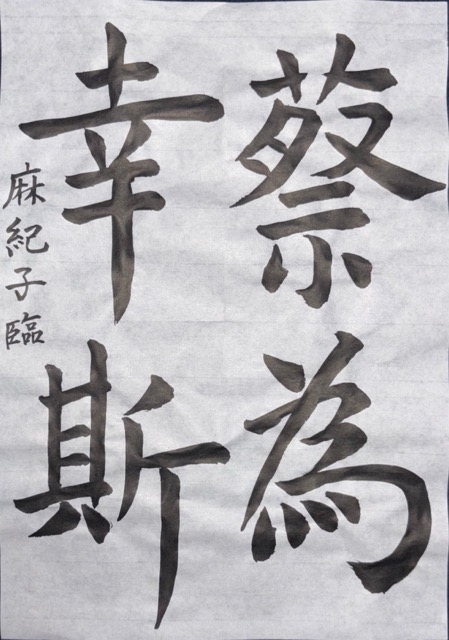 蔡為
幸斯
麻紀子臨